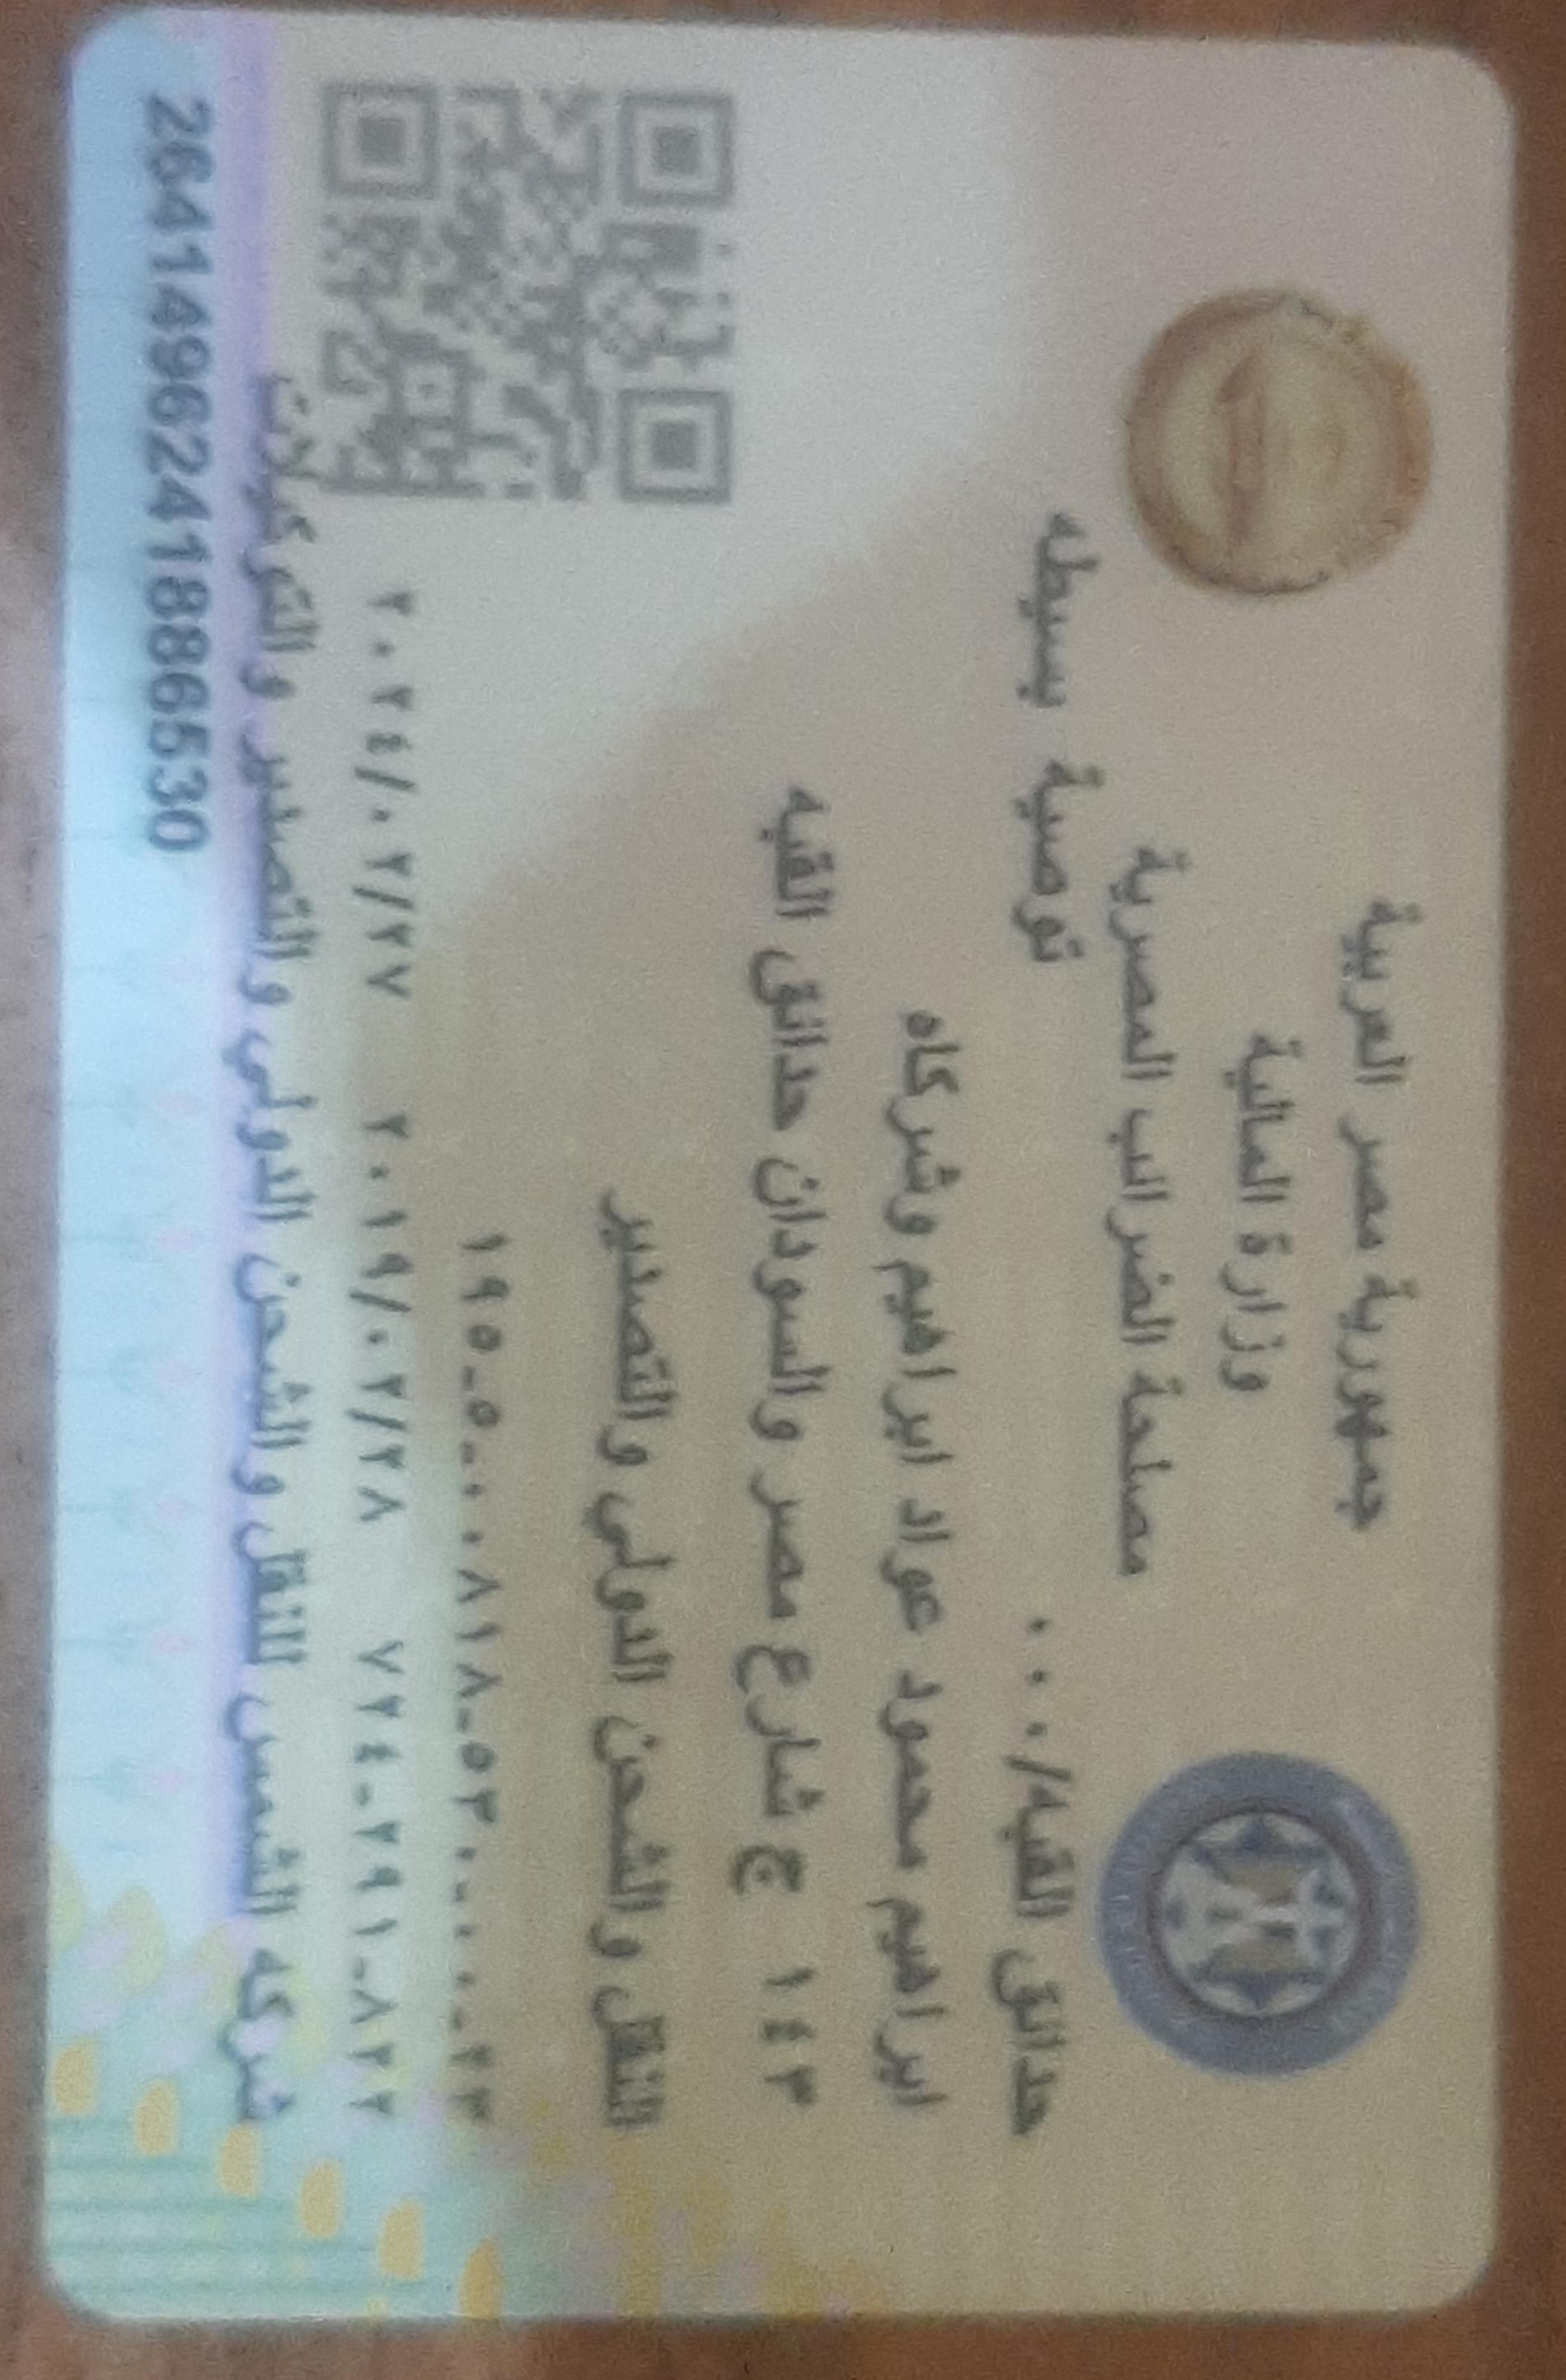 جمهورية مصر العربية
وزارة المالية
مصلحة الضرائب المصرية
حدائق القبه/٠٠٠ توصية بسيطه
ابراهيم محمود عواد ابراهيم وشركاه
١٤٣ ع شارع مصر والسودان حدائق القبه
النقل والشحن الدولى والتصدير
١٩٥-٥-٠٠٨١٨-٥٣٠-٠٠-٢٣
٧٢٤-٢٩١-٨٢٢ ٢٠١٩/٠٢/٢٨ ٢٠٢٤/٠٢/٢٧
شركه الشمس للنقل والشحن الدولى والتصدير والتوكيلات
2641496241886530